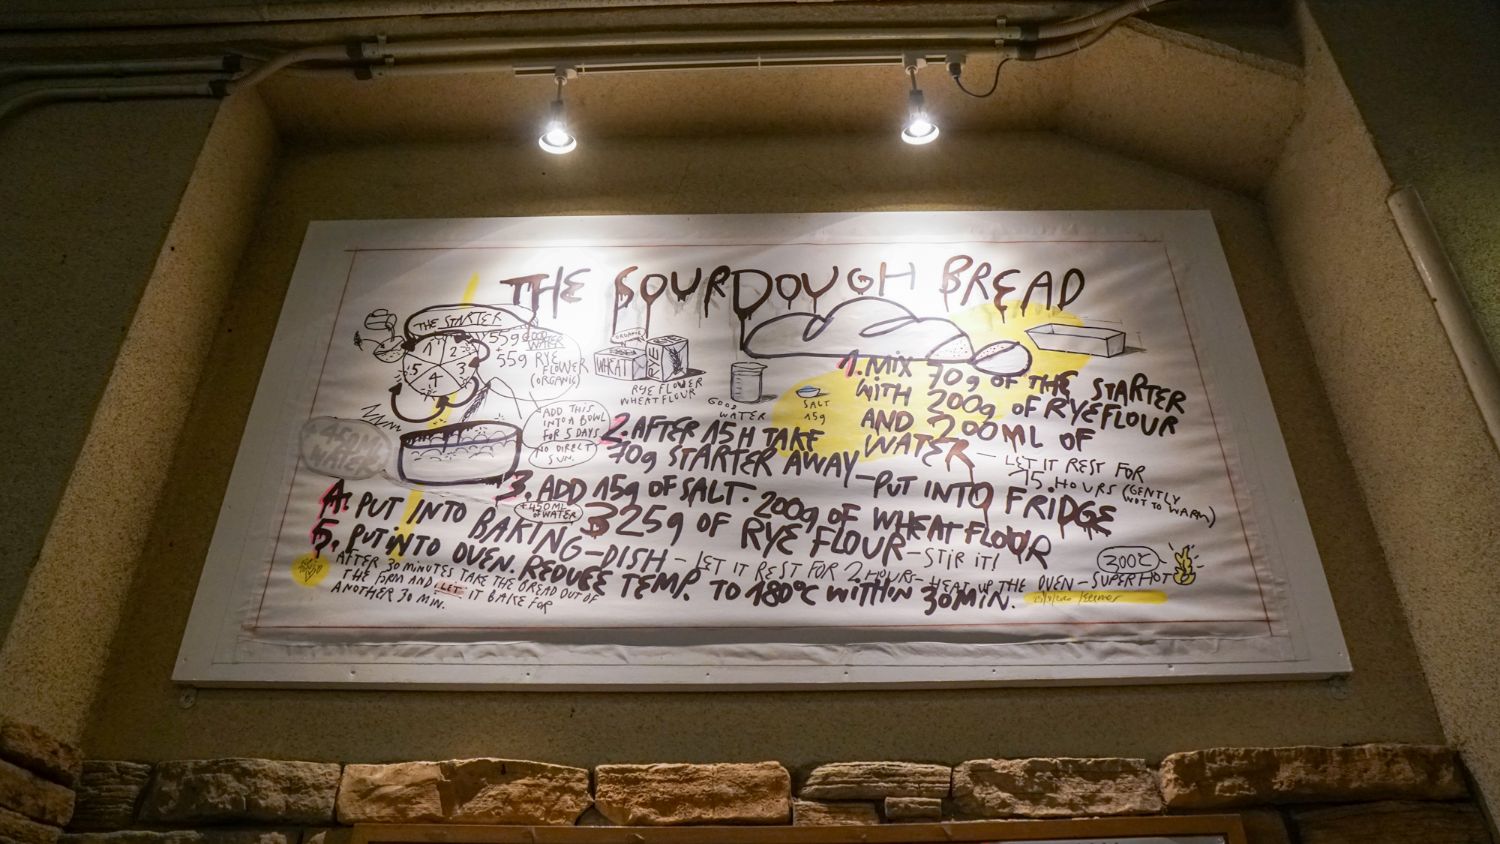 THE SOURDOUGH BREAD
THE STARTER
1 2 3 4 5
55g WATER
55g RYE
FLOWER
(ORGANIC)
ADD THIS
INTO A BOWL
FOR 5 DAYS
NO DIRECT
SUN.
ORGANIC
WHEAT
RYE
RYE FLOWER
WHEAT FLOUR
GOOD
WATER
SALT
15g
1. MIX 70g OF THE STARTER
WITH 200g OF RYEFLOUR
AND 200ML OF
WATER - LET IT REST FOR
15 HOURS (GENTLY
NOT TO WARM)
2. AFTER 15H TAKE
70g STARTER AWAY - PUT INTO FRIDGE
3. ADD 15g OF SALT. 200g OF WHEAT FLOUR
+450ML
OF WATER
325g OF RYE FLOUR - STIR IT!
+450ML
WATER
4. PUT INTO BAKING-DISH - LET IT REST FOR 2 HOURS - HEAT UP THE OVEN - SUPERHOT
300°C
5. PUT INTO OVEN. REDUCE TEMP. TO 180°C WITHIN 30MIN.
AFTER 30 MINUTES TAKE THE BREAD OUT OF
THE FORM AND LET IT BAKE FOR
ANOTHER 30 MIN.